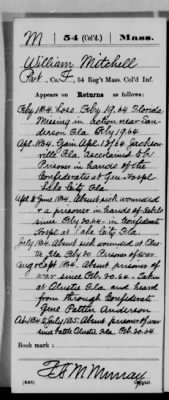 M | 54 (Col'd.) | Mass.
William Mitchell
Pvt., Co. F, 54 Reg't Mass. Col'd Inf.
Appears on
Returns as follows:
Feby 1864. Loss Feby 19, 64 Florida
Missing in action near San-
derson Fla. Feby 19, 64
Apl. 1864. Gain Apl. 18/64 Jackson-
ville Fla. Ascertained to be
Prisoner in hands of the
Confederates at Gen. Hospl
Lake City Fla.
Apl. & June 1864. Absent sick wounded
& a prisoner in hands of Rebels
since Feby 20, 64 in Confederate
Hospl at Lake City Fla.
July 1864. Absent sick wounded at Olus-
tee Fla. Feby 20. Prisoner of war
Aug & Sept 1864. Absent prisoner of
war since Feb. 20, 64. Taken
at Olustee Fla. and heard
from through Confederate
Genl Patten Anderson.
Oct. 1864 to July 1865. Absent prisoner of war
since battle Olustee Fla. Feb. 20, 64
Book mark:
F. S. M. Murray
(546) Copyist.